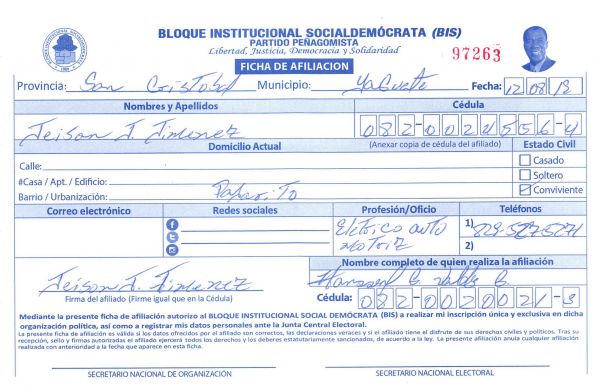 BLOQUE INSTITUCIONAL SOCIALDEMÓCRATA (BIS)
PARTIDO PEÑAGOMISTA
Libertad, Justicia, Democracia y Solidaridad
97263
FICHA DE AFILIACION
Provincia: San Cristobal Municipio: Yaguate Fecha: 12/08/19
Nombres y Apellidos Cédula
Jeison J. Jimenez 082-0022556-4
Domicilio Actual (Anexar copia de cédula del afiliado) Estado Civil
Calle: Casado
#Casa / Apt. / Edificio: Soltero
Barrio / Urbanización: Pajarito Conviviente
Correo electrónico Redes sociales Profesión/Oficio Teléfonos
Eletrico auto motriz 1) 829-527-5271
2)
Nombre completo de quien realiza la afiliación
Jeison J. Jimenez
Firma del afiliado (Firme igual que en la Cédula) Cédula: 082-0020021-3
Mediante la presente ficha de afiliación autorizo al BLOQUE INSTITUCIONAL SOCIAL DEMÓCRATA (BIS) a realizar mi inscripción única y exclusiva en dicha
organización política, así como a registrar mis datos personales ante la Junta Central Electoral.
La presente ficha de afiliación es válida si los datos ofrecidos por el afiliado son correctos, las declaraciones veraces y si el afiliado tiene el disfrute de sus derechos civiles y políticos. Tras su
recepción, sello y firmas autorizadas el afiliado ejercerá todos los derechos y los deberes estatutariamente sancionados, de acuerdo a la ley. La presente afiliación anula cualquier afiliación
realizada con anterioridad a la fecha que aparece en esta ficha.
SECRETARIO NACIONAL DE ORGANIZACIÓN SECRETARIO NACIONAL ELECTORAL